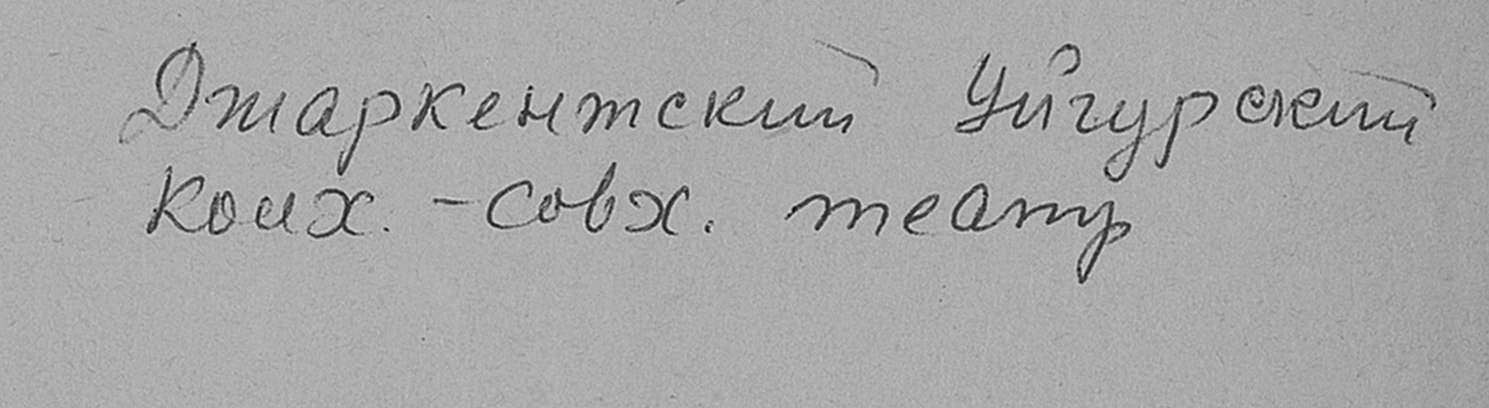 Джаркентский Уйгурский
колх. - совх. театр